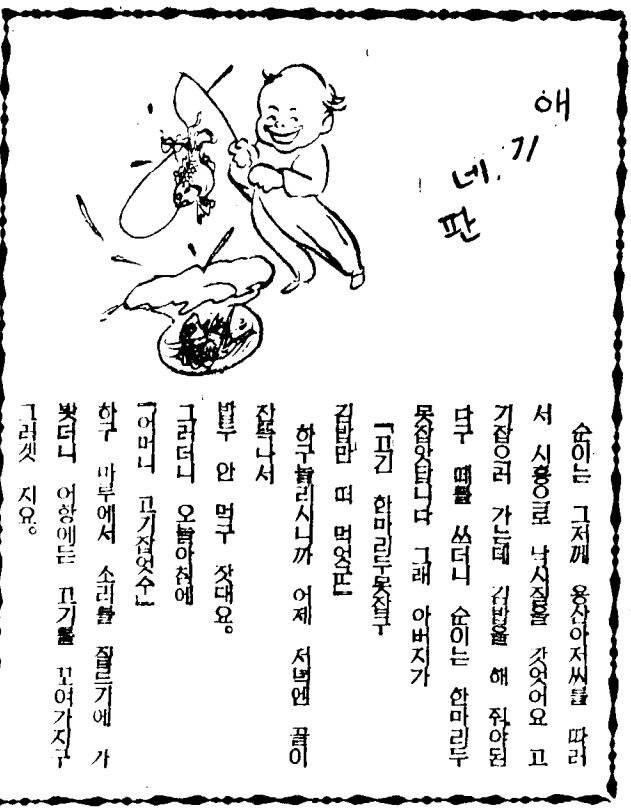 애기네판
순이는 그저께 용산아저씨를 따러
서 시흥으로 낙시질을 갓엇어요 고
기잡으러 가는데 김밥을 해 줘야된
다구 떼를 쓰더니 순이는 한마리두
못잡앗답니다 그래 아버지가
「꼬긴 한마리두못잡구
김밥만 떠 먹엇군
하구놀리시니까 어제 저녁엔 꼴이
잔뜩나서
밥두 안 먹구 잣대요。
그러더니 오늘아침에
「어머니 고기잡엇수」
하구 마루에서 소리를 질르기에 가
봣더니 어항에든 꼬기를 꼬여가지구
그러겟 지요。